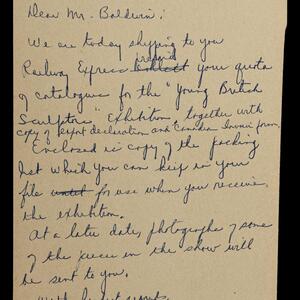 Dear Mr. Baldwin:
We are today shipping to you
prepaid
Railway Express your quota
of catalogues for the "Young British
Sculptors" Exhibition, together with
copy of export declaration and Canadian Invoice form.
Enclosed is copy of the packing
list which you can keep in your
file until for use when you receive
the exhibition.
At a later date, photographs of some
of the pieces in the show will
be sent to you.
With best regards